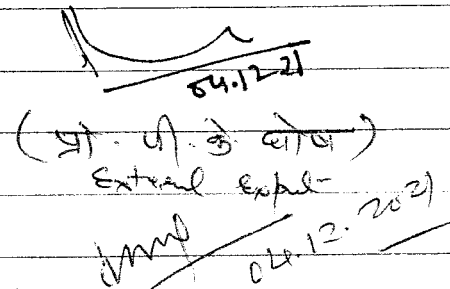 04.12.21
(प्रो. पी. के घोष)
External Expert
04.12.2021